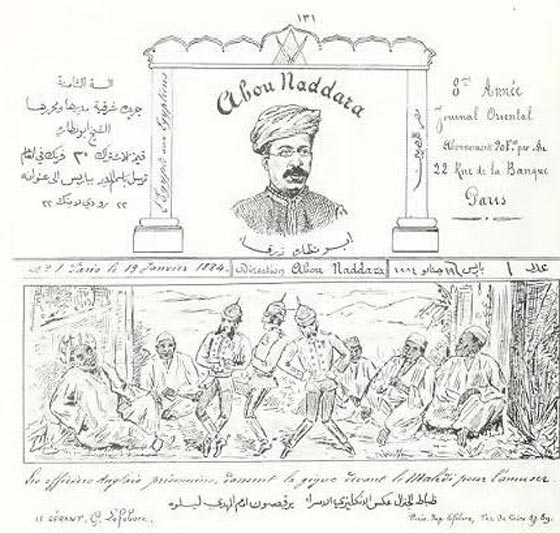 ١٣١
السنة الثامنة
جريدة شرقية مديرها ومحررها
الشيخ ابو نظارة
٣٠ فرنك في العام
ترسل باسم المدير بباريس الى عنوانه
٢٢ رو دي لا بنك ٢٢
L'Egypte aux Egyptiens
Abou Naddara
ابو نظارة زرقا
مصر للمصريين
8me Année
Journal Oriental
Abonnement 20 Fr par An
22 Rue de la Banque
Paris
No 1 Paris le 19 Janvier 1884. Direction Abou Naddara باريس ١٩ ١٨٨٤ عدد ١
Les officiers Anglais prisonniers, dansent la gigue devant le Mahdi pour l'amuser.
ضباط الجنرال هكس الانكليزي الاسرا يرقصون امام المهدي
LE GÉRANT, G. Lefebvre.
Paris. Imp. Lefebvre, Pas. du Caire